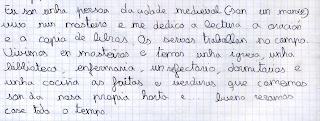 Eu son unha persoa da idade medieval (son un monxe)
vivo nun mosteiro e me dedico a lectura a oración
e a copia de libros. Os servos traballan no campo.
Vivimos en mosteiros e temos unha igrexa, unha
biblioteca enfermaria, un refectorio, dormitorios e
unha cociña as froitas e verduras que comemos
son da nosa propia horta e.... bueno rezamos
case todo o tempo.